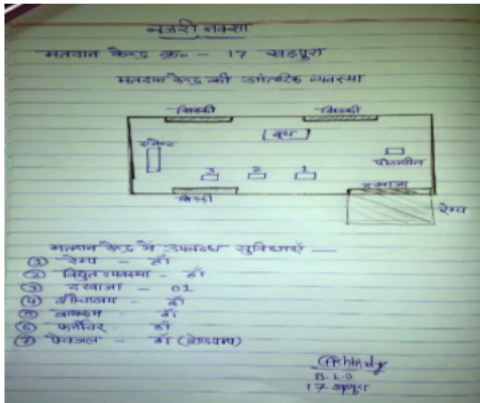 नजरी नक्शा
मतदान केन्द्र क्र० - 17 खड़पुरा
मतदान केन्द्र की आंतरिक व्यवस्था
खिड़की खिड़की
बूथ
एजेन्ट
3 2 1
पीठासीन
खिड़की
दरवाजा
रैम्प
मतदान केन्द्र में उपलब्ध सुविधाएँ —
① रैम्प - हाँ
② विद्युत व्यवस्था - हाँ
③ दरवाजा - 01
④ शौचालय - हाँ
⑤ हाँ
⑥ फर्नीचर हाँ
⑦ पेयजल - हाँ (हेण्डपम्प)
B.L.O
17